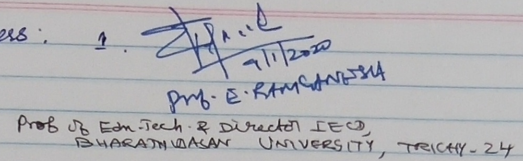 ess: 1.
9/1/2020
Prof. E. RAMGANESH
Prof of Edn. Tech. & Director IECD,
BHARATHIDASAN UNIVERSITY, TRICHY-24